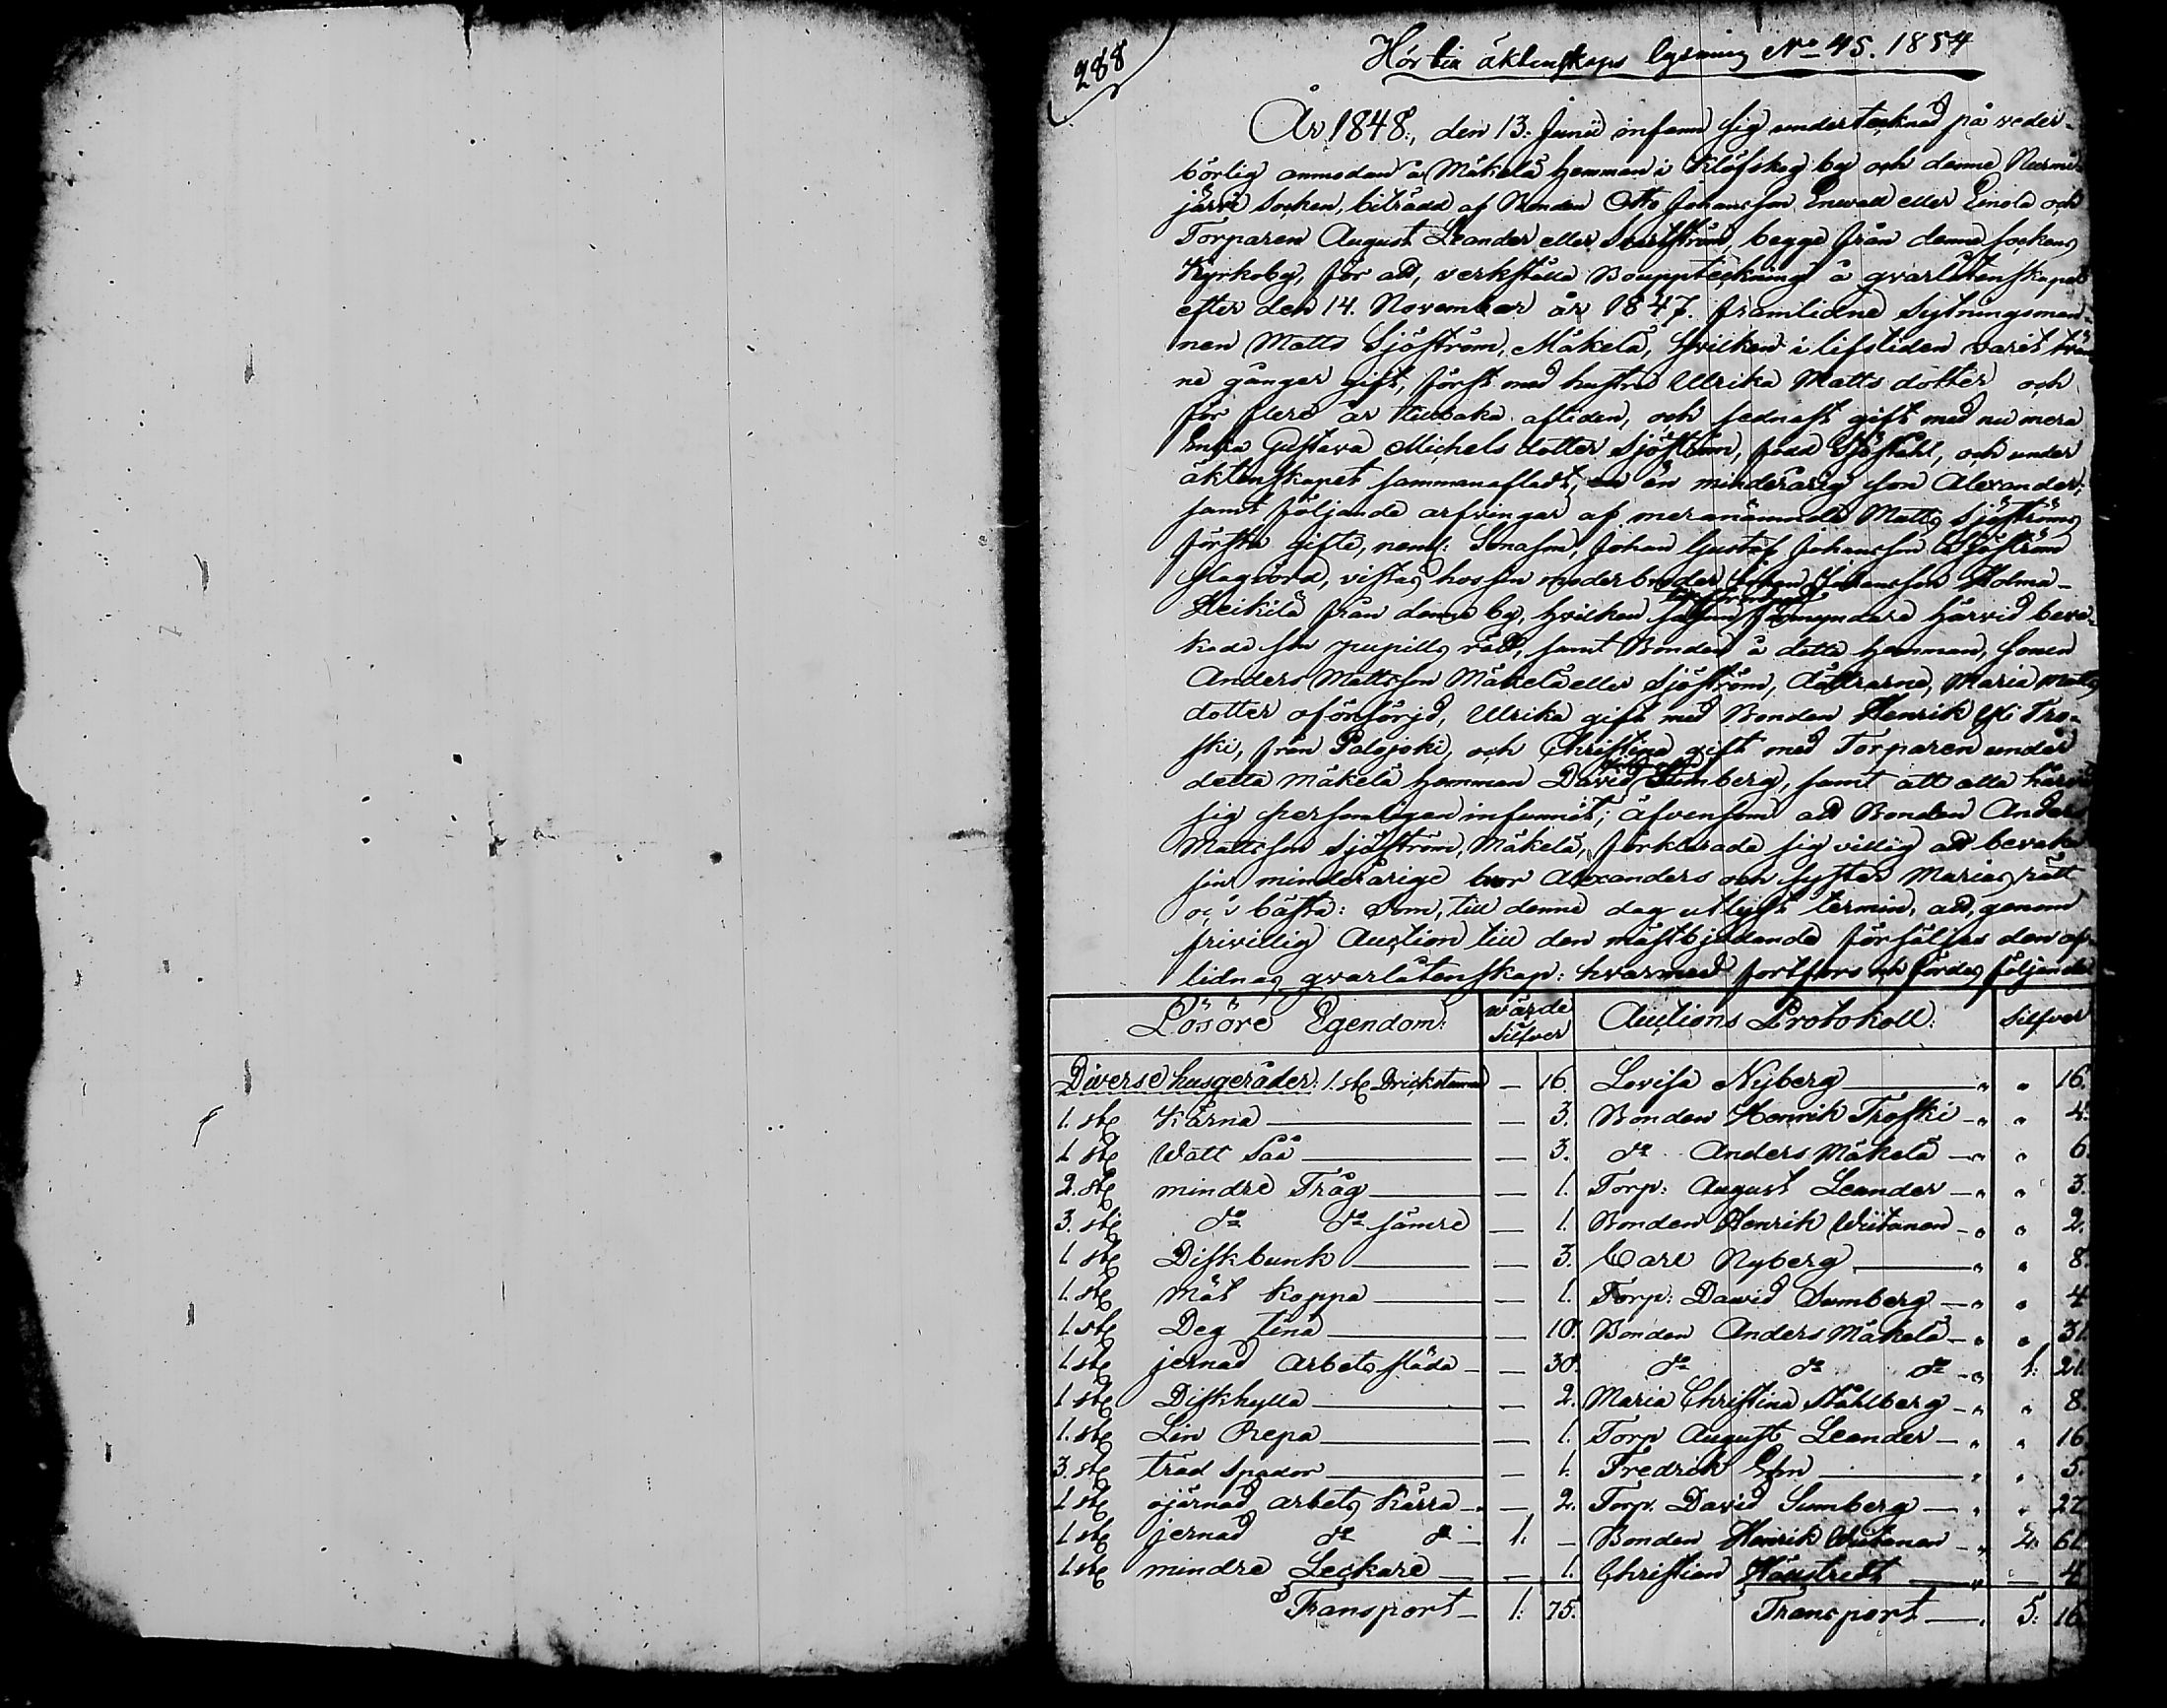 288
Hör till äktenskaps lysning No 45. 1854
År 1848., den 13. Junii infann sig undertecknad på veder-
börlig anmodan å Mäkelä hemman i Klöfskog by och denne Nurmi-
järvi Socken, biträdd af Bonden Otto Johansson Enwall eller Einola och
Torparen August Leander eller begge från denne sockens
Kyrkoby, för att, verkställa Bouppteckning å qvarlåtenskapen
efter den 14. November år 1847. framlidne Sytningsman-
nen Matts Sjöström, Mäkelä, hvilken i lifstiden varit tvän-
ne gånger gift, först med hustru Ulrika Matts dotter och
för flere år tillbaka afliden, och sednast gift med nu mera
Enka Gustava Michels dotter Sjöström, född Sjöståhl, och under
äktenskapet sammanafladt, en minderårig son Alexander;
samt följande arfvingar af meranämnde Matts Sjöströms
första gifte, neml: Sonason, Johan Gustaf Johansson Sjöström
vistas hos sin moderbroder Johan Johansson Holma-
Heikilä från denne by, hvilken såsom förmyndare härvid beva-
kade sin pupills rätt, samt Bonden å detta hemman, sonen
Anders Mattsson Mäkelä eller Sjöström, döttrarne, Maria Matts
dotter oförsörjd, Ulrika gift med Bonden Henrik Yli Tro-
ski, från Palojoki, och Christina gift med Torparen under
detta Mäkelä hemman David Sumberg, samt att alla härvid
sig personligen infunnit; äfvensom att Bonden Anders
Mattsson Sjöström, Mäkelä, förklarade sig villig att bevaka
sin minderårige bror Alexanders och syster Marias rätt
och bästa: Som, till denne dag utlyst termin, att, genom
frivillig Auction till den mästbjudande försäljas den af-
lidnas qvarlåtenskap: hvarmed fortfors och fördes följande
Lösöre Egendom: wärde Silfver Auctions Protokoll: Silfver
Diverse husgeråder: 1. st. Drickstunna — 16. Lovisa Nyberg — „ „ 16.
1. st. Kärna — — 3. Bonden Henrik Troski — „ „ 4.
1 st. Watt Såå — — 3. do Anders Mäkelä — „ „ 6.
2. st. mindre Tråg — — 1. Torp: August Leander — „ „ 3.
3. st. do do sämre — 1. Bonden Henrik Wiitanen — „ „ 2.
1 st. Diskbunk — — 3. Carl Nyberg — „ „ 8.
1. st. Måt Kappa — — 1. Torp: Dawid Sumberg — „ „ 4
1 st. Deg tina — — 10. Bonden Anders Mäkelä — „ „ 31.
1 st. jernad Arbets släda — — 30. do do do — „ 1: 21.
1 st. Diskhylla — — 2. Maria Christina Ståhlberg — „ „ 8.
1. st. Lin Repa — — 1. Torp August Leander — „ „ 16.
3. st. träd Spador — — 1. Fredrik — „ „ 5.
1 st. ojärnad arbets Kärra — — 2. Torp. David Sumberg — „ „ 27
1 st. jernad do do — 1. — Bonden Henrik Wiitanen — „ 2: 61.
1 st. mindre Leckare — — 1. Christian — „ — 4
Transport — 1: 75. Transport — 5: 16